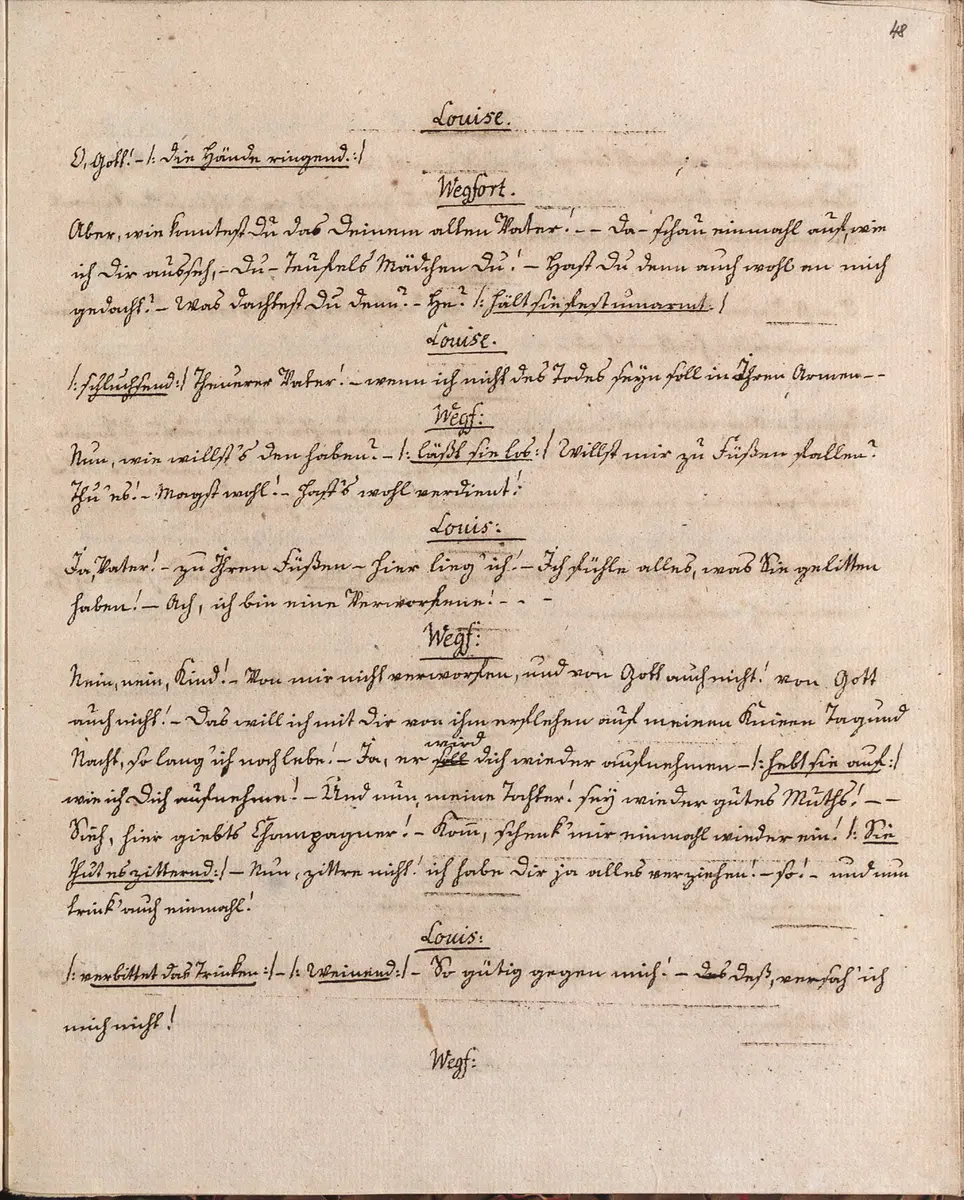 48
Louise.
O, Gott! - /: die Hände ringend. :/
Wegfort.
Aber, wie konntest Du das Deinem alten Vater! - - Da - schau einmahl auf, wie
ich Dir ausseh, - Du - Teufels Mädchen Du! - Hast Du denn auch wohl an mich
gedacht? - Was dachtest Du denn? - He? /: hält sie fest umarmt. /
Louise.
/: schluchsend :/ Theuerer Vater! - wenn ich nicht des Todes seyn soll in Ihren Armen - -
Wegf:
Nun, wie willst's den haben? - /: läßt sie los :/ Willst mir zu Füßen fallen?
Thu' es! - Magst wohl! - hast's wohl verdient!
Louis:
Ja, Vater! - zu Ihren Füßen - hier lieg' ich! - Ich fühle alles, was Sie gelitten
haben! - Ach, ich bin eine Verworfene! - - -
Wegf:
Nein, nein, Kind! - Von mir nicht verworfen, und von Gott auch nicht! von Gott
auch nicht! - Das will ich mit Dir von ihm erflehen auf meinen Knieen Tag und
Nacht, so lang' ich noch lebe! - Ja, er soll wird dich wieder aufnehmen - /: hebt sie auf :/
wie ich Dich aufnehme! - Und nun, meine Tochter! sey wieder gutes Muths! - -
Sieh, hier giebts Champagner! - Kom̅, schenk' mir einmahl wieder ein! /: Sie
thut es zitternd :/ - Nun, zittre nicht! ich habe Dir ja alles verziehen! - so! - und nun
trink' auch einmahl!
Louis:
/: verbittet das Trinken :/ - /: Weinend :/ - So gütig gegen mich! - das deß, versah' ich
mich nicht!
Wegf: